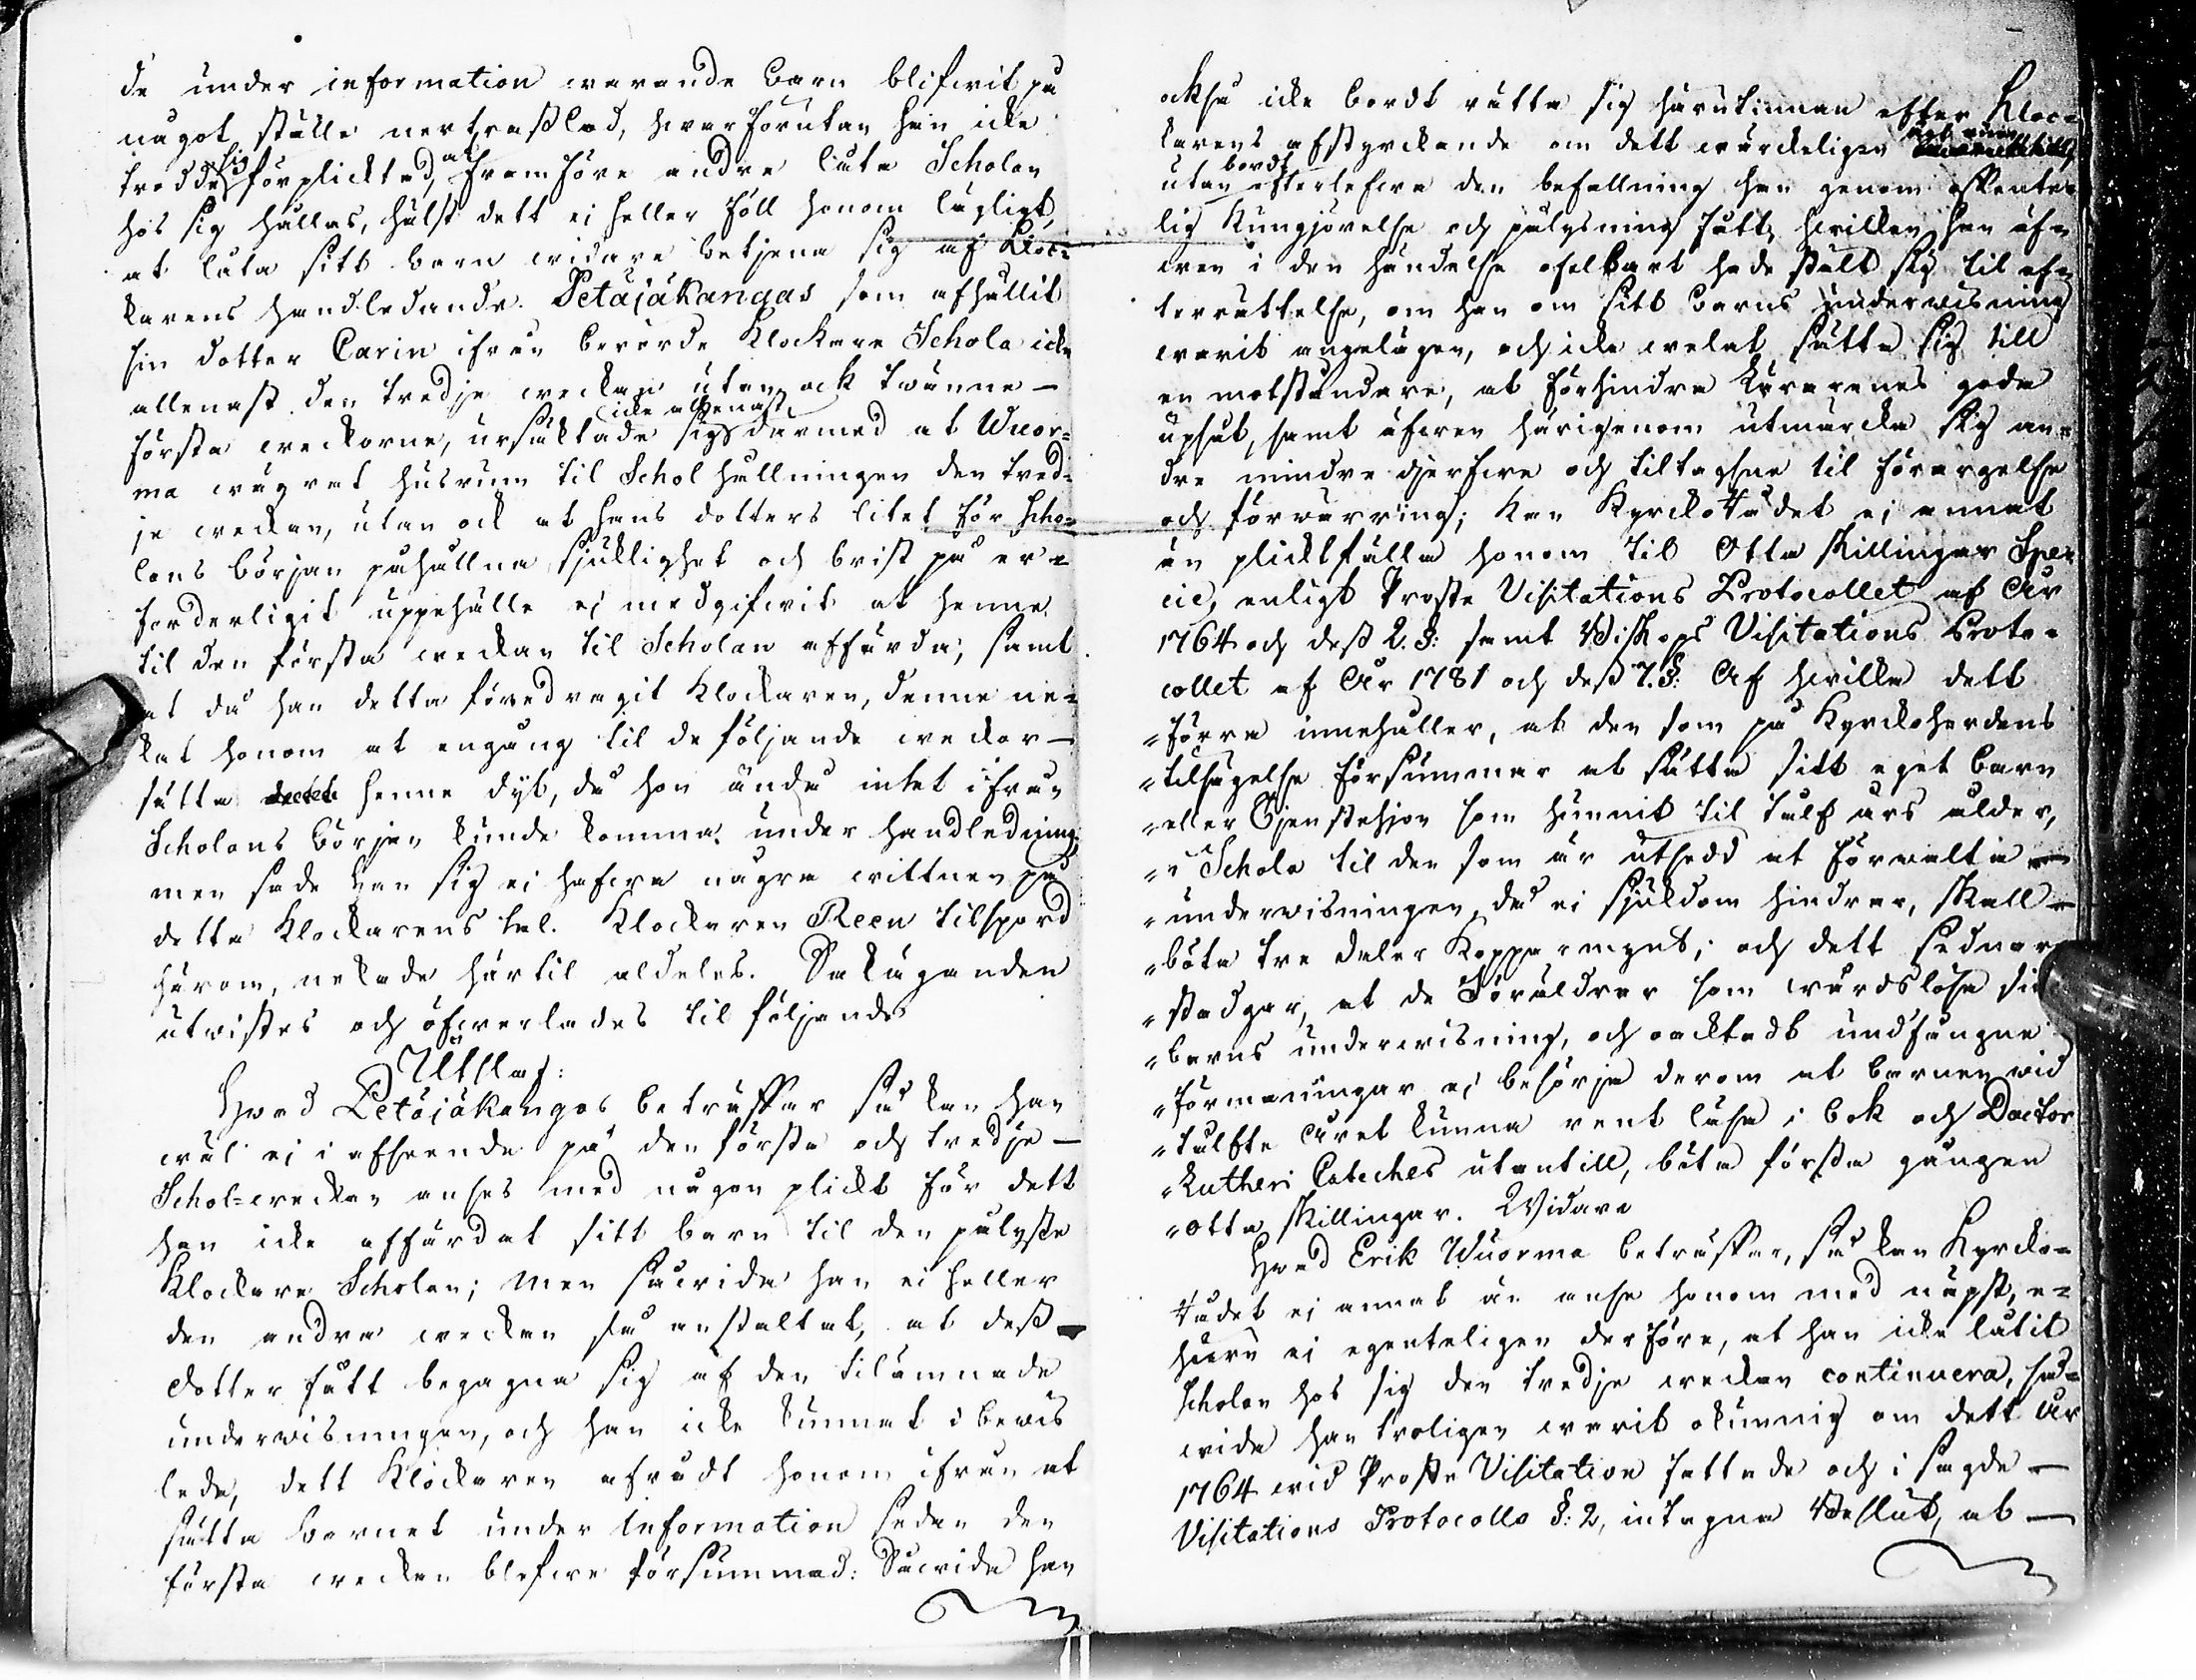 de under information warande barn blifwit på
något ställe nertraßlad, hwarförutan han icke
trodde sig förplicktad, at framföre andre låta Scholan
hos sig hållas, hälst dett ej heller föll honom lägligt,
at låta sitt barn widare betjena sig af Kloc=
karens handledande. Petäjäkangas som afhållit
sin dotter Carin ifrån berörde Klockare Schola icke
allenast den tredje weckan utan ock twänne —
första weckorne, ursäktade sig icke allenast dermed at Wuor=
ma wägrat husrum til Schol hållningen den tred=
je weckan, utan ock at hans dotters litet för Scho=
lans början påhållna sjuklighet och brist på er=
forderligit uppehälle ej medgifwit at henne
til den första weckan til Scholan affärda, samt
at då han detta föredragit Klockaren, denne ne=
kat honom at engång til de följande weckor —
sätta henne dyt, då hon ändå intet ifrån
Scholans början kunde komma under handledning;
men sade han sig ej hafwa några wittnen på
detta Klockarens tal. Klockaren Reen tilspord
härom, nekade härtil aldeles. Sakäganden
utwistes och öfwerlades til följande
Utslag:
Hwad Petäjäkangas beträffar så kan han
wäl ej i afseende på den första och tredje —
Schol=weckan anses med någon plickt för dett
han icke affärdat sitt barn til den pålyste
Klockare Scholan; men såwida han ej heller
den andra weckan så anstaltat, at deß
dotter fått begagna sig af den tilämnade
underwisningen, och han icke kunnat i bewis
leda, dett Klockaren afrådt honom ifrån at
sätta barnet under information sedan den
första weckan blefwe försummad: Såwida han
också icke bordt rätta sig härutinnan efter Kloc=
karens afstyrckande om dett wärckeligen
utan bordt efterlefwa den befallning han genom offente=
lig Kungjörelse och pålysning fått, hwilken han äf=
wen i den händelse ofelbart hade stält sig til ef=
terrättelse, om han om sitt barns underwisning
warit angelägen, och icke welat sätta sig till
en motståndare, at förhindra Lärarenes goda
upsåt, samt äfwen härigenom utmärcka sig an=
dre mindre djerfwe och tiltagsne til förargelse
och förwärring; kan KyrckoRådet ej annat
än plicktfälla honom til Otta Skillingar Spe=
cie, enligt Proste Visitations Protocollet af År
1764 och deß 2. §: samt Biskops Visitations Proto=
collet af År 1781 och deß 7. §: Af hwilka dett
"förra innehåller, at den som på Kyrckoherdens
"tilsägelse försummar at sätta sitt eget barn
"eller Tjenstehjon som hunnit til tålf års ålder,
"i Schola til den som är utsedd at förwalta
"underwisningen, då ej sjukdom hindrar, skall —
"böta tre daler Kopparmynt; och dett sednare
"stadgar, at de Föräldrar som wårdslösa sin
"barns underwisning, och oacktadt undfångne
"förmaningar ej besörja derom at barnen wid
"tålfte Året kunna rent läsa i bok och Doctor
"Lutheri Cateches utantill, böta första gången
"otta Skillingar. Widare
Hwad Erik Wuorma beträffar, så kan Kyrcko=
Rådet ej annat än anse honom med näpst, e=
huru ej egenteligen derföre, at han icke låtit
Scholan hos sig den tredje weckan continuera, så=
wida han troligen warit okunnig om dett År
1764 wid Proste Visitation fattade och i sagde —
Visitations Protocolls §: 2, intagne Beslut, at —